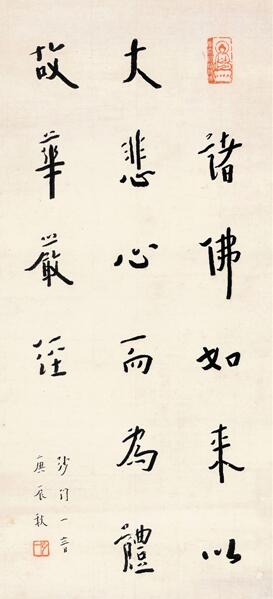 諸佛如来以
大悲心而為體
故華嚴經
沙門一音
庚辰秋